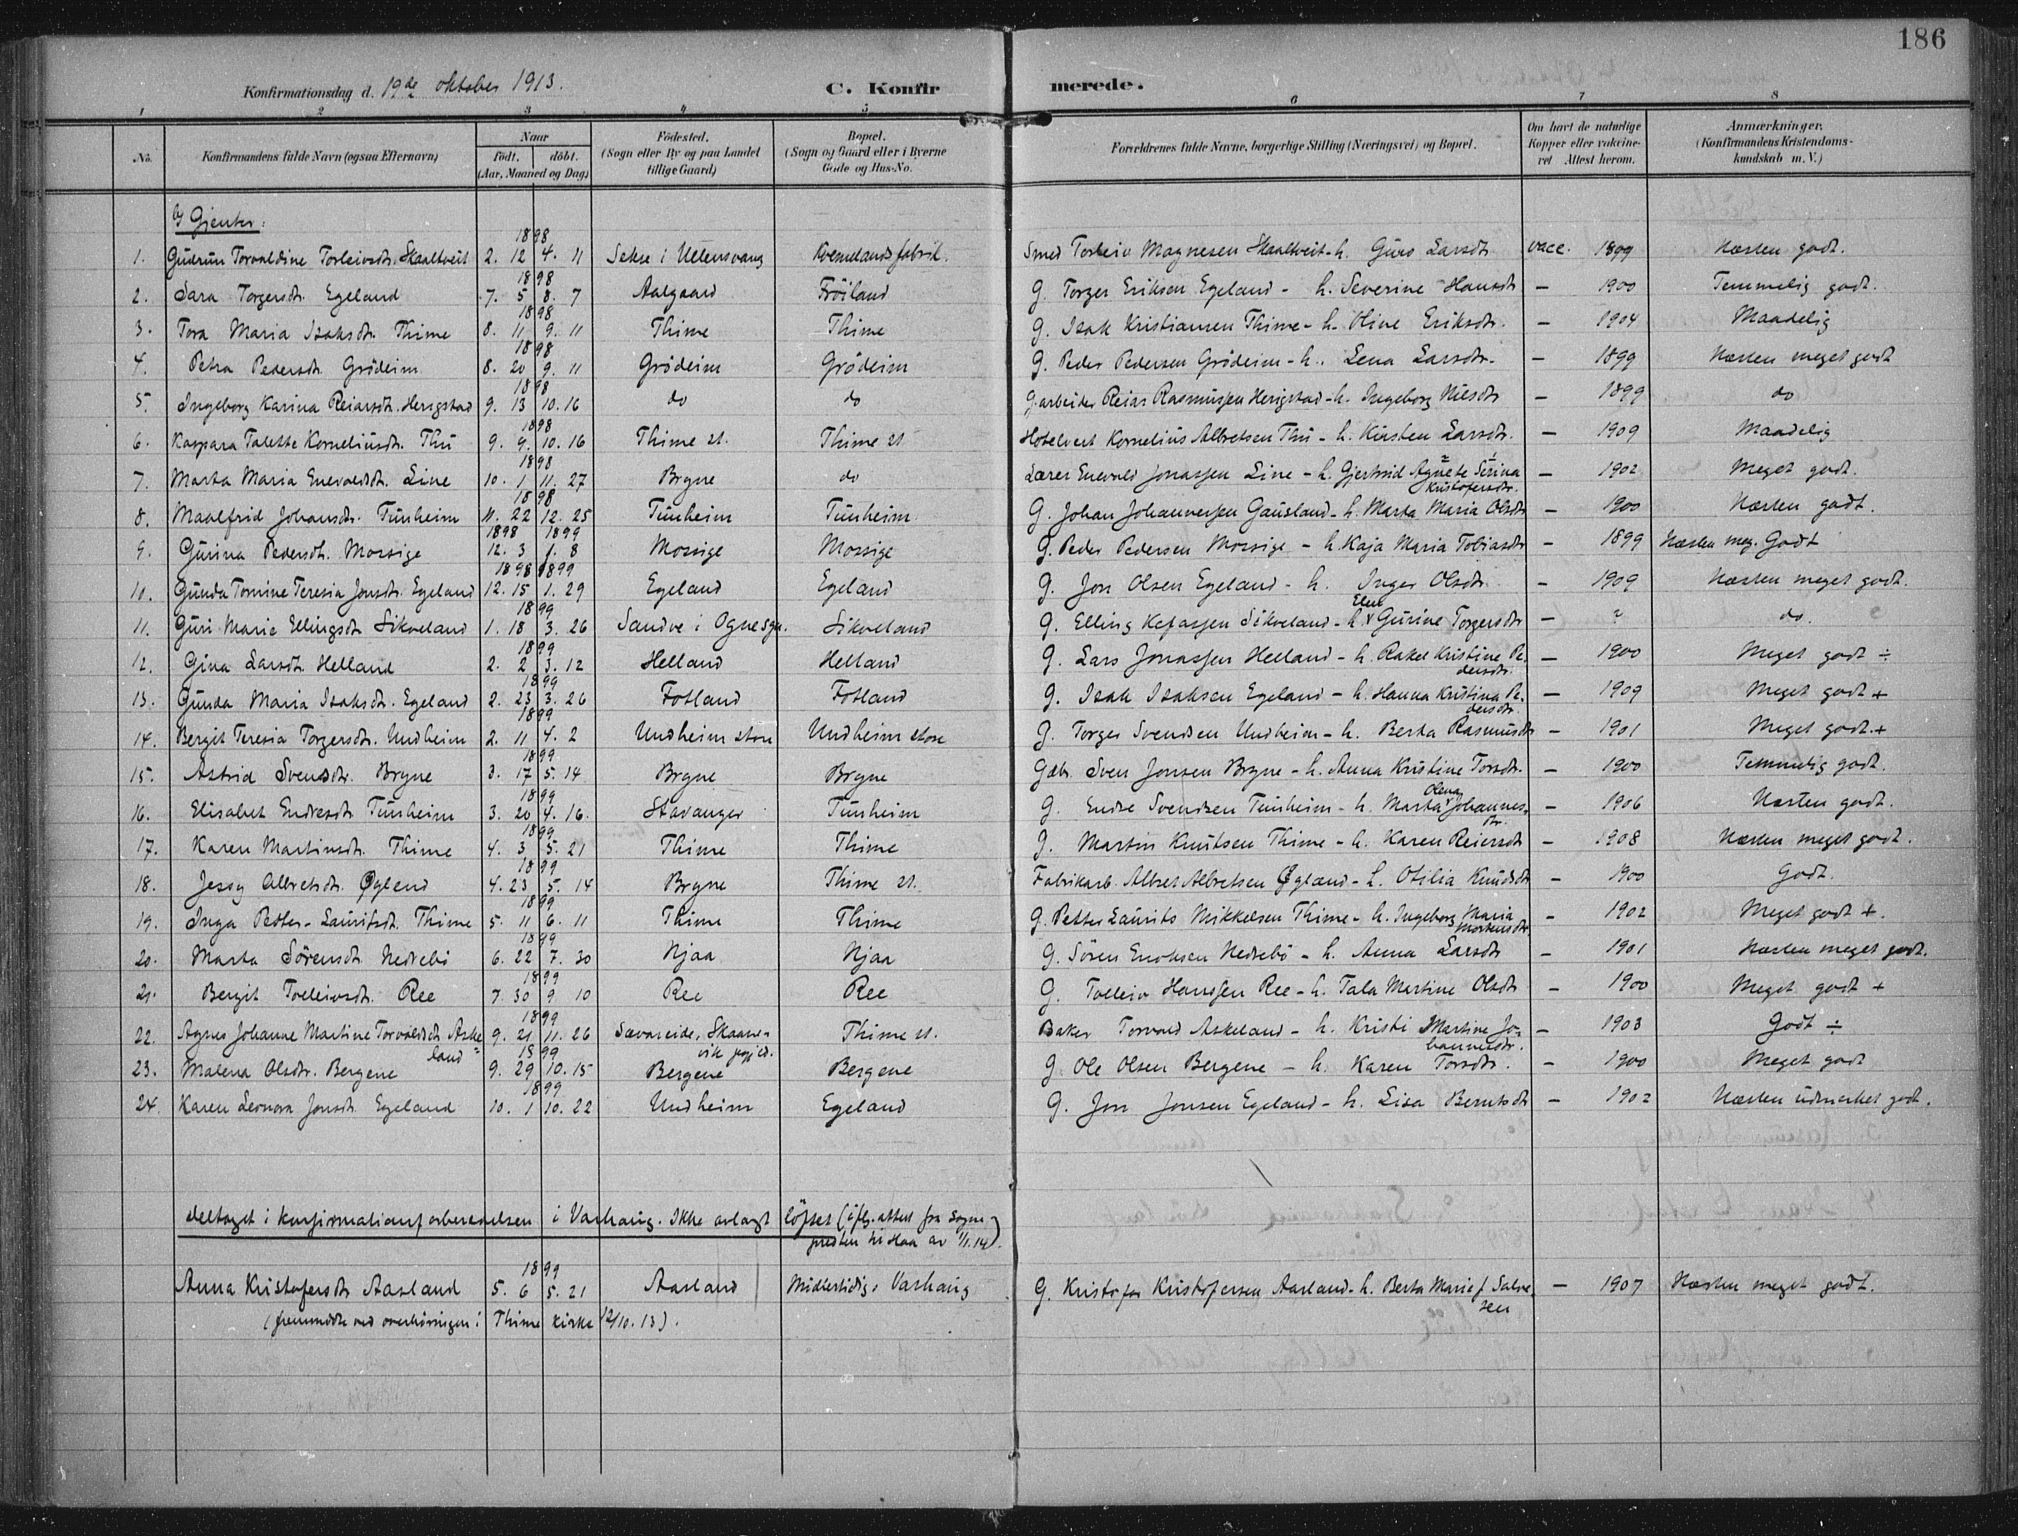 186
Konfirmationsdag d. 19de oktober 1913. C. Konfir merede.
1 2 3 4 5 6 7 8
No. Konfirmandens fulde Navn (ogsaa Efternavn) Naar födt. döbt. (Aar, Maaned og Dag) Födested. (Sogn eller By og paa Landet tillige Gaard) Bopæl. (Sogn og Gaard eller i Byerne Gade og Hus-No. Forældrenes fulde Navne, borgerlige Stilling (Næringsvei) og Bopæl. Om havt de naturlige Kopper eller vakcineret Attest herom. Anmærkninger. (Konfirmandens Kristendomskundskab m. V.)
b) Gjenter:
1898
1. Gudrun Torvaldine Torleivsdtr. Skaaltveit 2. 12 4. 11 Sekse i Ullensvang Kvernelands fabrik. Smed Torleiv Magnesen Skaaltveit - h. Guro Larsdtr vacc. 1899 Næsten godt.
1898
2. Sara Torgersdtr. Egeland 7. 5 8. 7 Aalgaard Fröiland G. Torger Eriksen Egeland - h. Severine Hansdtr — 1900 Temmelig godt.
1898
3. Tora Maria Isaksdtr. Thime 8. 11 9. 11 Thime Thime G. Isak Kristiansen Thime - h. Oline Eriksdtr. — 1904 Maadelig
1898
4. Petra Pedersdtr. Grödeim 8. 20 9. 11 Grödeim Grödeim G. Peder Pedersen Grödeim - h. Lena Larsdtr. — 1899 Næsten meget godt
1898
5. Ingeborg Karina Reiarsdtr. Herigstad 9. 13 10. 16 do do G.arbeider Reiar Rasmussen Herigstad - h. Ingeborg Nilsdtr — 1899 do
1898
6. Kaspara Talette Korneliusdtr. Thu 9. 9. 10. 16 Thime st. Thime st Hotelvert Kornelius Albretsen Thu - h. Kirsten Larsdtr. — 1909 Maadelig
1898
7. Marta Maria Enevaldsdtr. Line 10. 1 11. 27 Bryne do Lærer Enevald Jonassen Line - h. Gjertrud Agnete Serina Kristofersdtr. — 1902 Meget godt.
1898
8. Maalfrid Johansdtr. Tunheim 11. 22 12. 25 Tunheim Tunheim G. Johan Johannessen Gausland - h. Marta Maria Olsdtr — 1900 Næsten godt.
1898 1899
9. Gurina Pedersdtr. Mossige 12. 3 1. 8 Mossige Mossige G. Peder Pedersen Mossige - h. Kaja Maria Tobiasdtr — 1899 Næsten meg. Godt
1898 1899
10. Gunda Tomine Teresia Jonsdtr. Egeland 12. 15 1. 29 Egeland Egeland G. Jon Olsen Egeland - h. Inger Olsdtr. — 1909 Næsten meget godt.
1899
11. Guri Marie Ellingsdtr Sikveland 1. 18 3. 26 Sandve i Ognesgn. Sikveland G. Elling Kefassen Sikveland - h. Elen Gurine Torgersdtr — ? do.
1899
12. Gina Larsdtr. Helland 2. 2 3. 12 Helland Helland G. Lars Jonassen Helland - h. Rakel Kristine Pedersdtr. — 1900 Meget godt ÷
1899
13. Gunda Maria Isaksdtr. Egeland 2. 23 3. 26 Fotland Fotland G. Isak Isaksen Egeland - h. Hanna Kristina Pedersdtr. — 1909 Meget godt +
1899
14. Bergit Teresia Torgersdtr. Undheim 2. 11 4. 2 Undheim store Undheim store G. Torger Svendsen Undheim - h. Berta Rasmusdtr — 1901 Meget godt. +
1899
15. Astrid Svensdtr. Bryne 3. 17 5. 14 Bryne Bryne Gdbr. Sven Jonsen Bryne - h. Anna Kristine Torsdtr. — 1900 Temmelig godt.
1899
16. Elisabet Endresdtr Tunheim 3. 20 4. 16. Stavanger Tunheim G. Endre Svendsen Tunheim - h. Marta Olena Johannesdtr. — 1906 Næsten godt.
1899
17. Karen Martinsdtr. Thime 4. 3 5. 21 Thime Thime G. Martin Knutsen Thime - h. Karen Reiersdtr — 1908 Næsten meget godt.
1899
18. Jessy Albretsdtr. Øglend 4. 23 5. 14 Bryne Thime st. Fabrikarb. Albret Albretsen Øglænd - h. Otilia Knudsdtr — 1900 Godt.
1899
19. Inga Petter-Lauritsdtr. Thime 5. 11 6. 11 Thime Thime G. Petter Laurits Mikkelsen Thime - h. Ingeborg Maria Mortensdtr. — 1902 Meget godt +.
1899
20. Marta Sörensdtr Nedrebö 6. 22 7. 30 Njaa Njaa G. Sören Enoksen Nedrebö - h. Anna Larsdtr — 1901 Næsten meget godt.
1899
21. Bergit Tolleivsdtr. Ree 7. 30 9. 10 Ree Ree G. Tolleiv Hanssen Ree - h. Tala Martine Olsdtr — 1900 Meget godt +
1899
22. Agnes Johanne Martine Torvaldsdtr. Askeland 9. 21 11. 26 Sævareide, Skaanevik prgjld. Thime st. Baker Torvald Askeland - h. Kristi Martine Johannesdtr. — 1903 Godt ÷
1899
23. Malena Olsdtr. Bergene 9. 29 10. 15 Bergene Bergene G. Ole Olsen Bergene - h. Karen Torsdtr. — 1900 Meget godt
1899
24. Karen Leonora Jonsdtr. Egeland 10. 1 10. 22 Undheim Egeland G. Jon Jonsen Egeland - h. Lisa Berntsdtr — 1902 Næsten udmerket godt.
Deltaget i konfirmationsforberedelsen i Varhaug. Ikke avlagt löftet (iflg. attest fra sogne-
presten til Haa av 1/1.14).
1899
Anna Kristofersdtr Aarland 5. 6 5. 21 Aarland Midlertidig: Varhaug G. Kristofer Kristofersen Aarland - h. Berta Marie f. Salvesen — 1907 Næsten meget godt.
(fremmödte ved overhöringen i Thime kirke 12/10. 13).